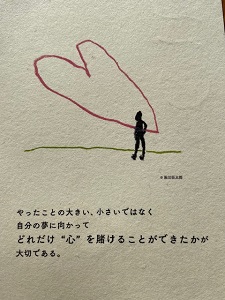 やったことの大きい、小さいではなく
自分の夢に向かって
どれだけ“心”を賭けることができたかが
大切である。